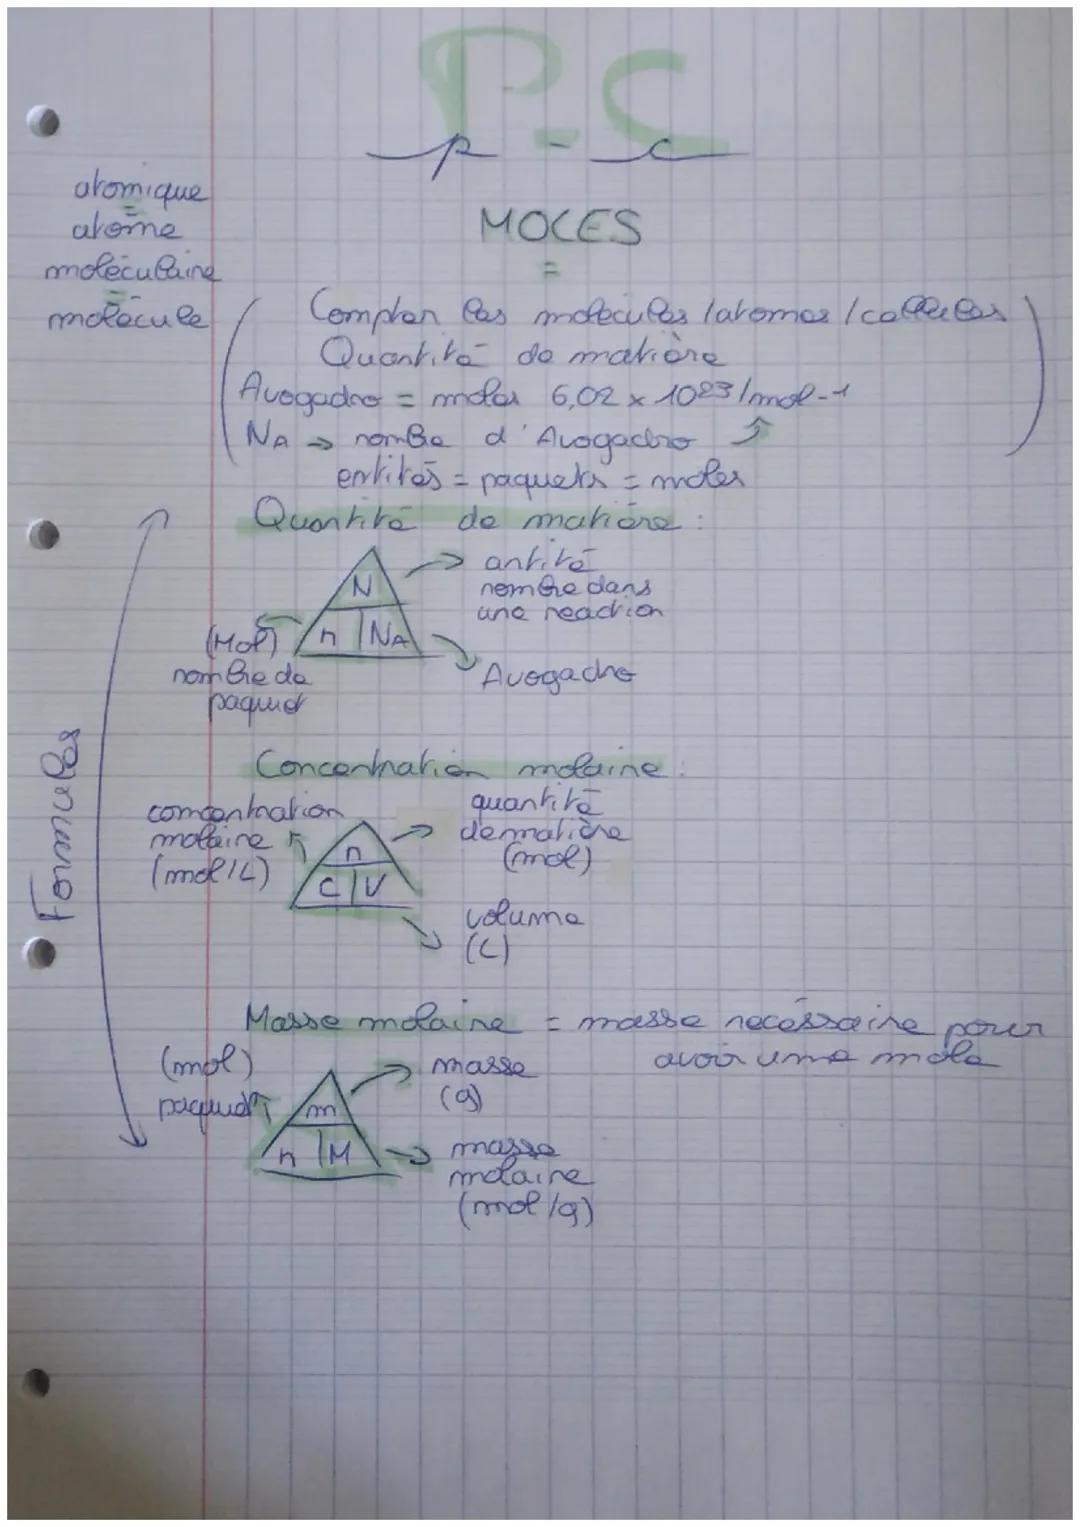 P-C
p - c
atomique
=
atome
moléculaire
=
molécule
MOLES
=
Compter les molécules / atomes / cellules
Quantité de matière
Avogadro = moles 6,02 x 1023/mol-1
NA → nombre d'Avogadro
entités = paquets = moles
Quantité de matière :
N
n | NA
entité
nombre dans
une reaction
(Mol)
nombre de
paquet
Avogadro
Formules
Concentration molaire :
concentration
molaire
(mol/L)
n
C | V
quantité
de matière
(mol)
volume
(L)
Masse molaire = masse necéssaire pour
avoir une mole
(mol)
paquet
m
n | M
masse
(g)
masse
molaire
(mol/g)